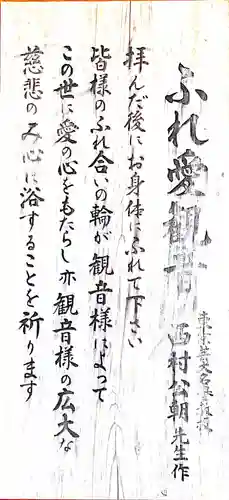 ふれ愛観音
東京芸大名誉教授
西村公朝先生作
拝んだ後にお身体にふれて下さい
皆様のふれ合いの輪が観音様によって
この世に愛の心をもたらし亦観音様の広大な
慈悲のみ心に浴することを祈ります